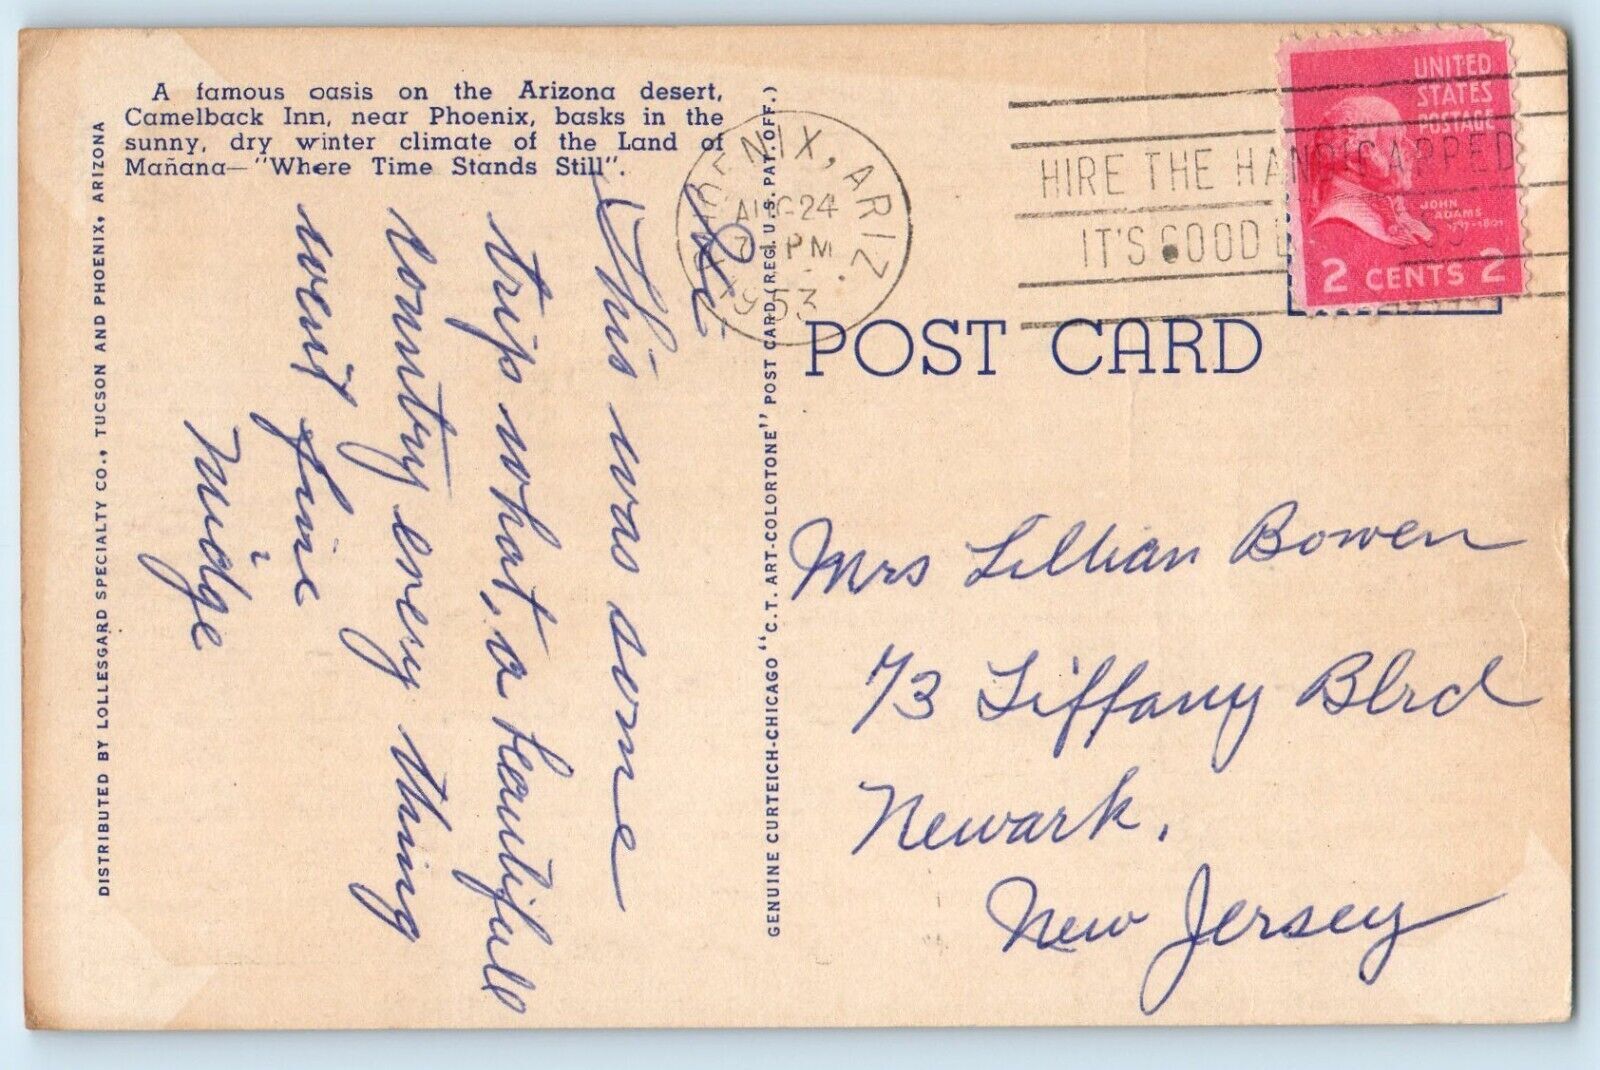 A famous oasis on the Arizona desert,
Camelback Inn, near Phoenix, basks in the
sunny, dry winter climate of the Land of
Mañana—"Where Time Stands Still".
DISTRIBUTED BY LOLLESGARD SPECIALTY CO., TUCSON AND PHOENIX, ARIZONA
This was some
trip what, a beautifull
country every thing
went fine
Midge
GENUINE CURTEICH-CHICAGO "C.T. ART-COLORTONE" POST CARD (REG. U.S. PAT. OFF.)
PHOENIX, ARIZ.
AUG 24
7 PM
1953
HIRE THE HANDICAPPED
IT'S GOOD
UNITED
STATES
POSTAGE
JOHN
ADAMS
1797-1801
2 CENTS 2
POST CARD
Mrs Lillian Bowen
73 Tiffany Blvd
Newark,
New Jersey